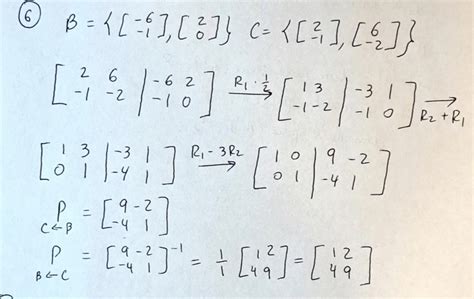 ⑥ B = {[-6 -1], [2 0]} C = {[2 -1], [6 -2]}
[2 6 | -6 2
-1 -2 | -1 0] R₁·½ → [1 3 | -3 1
-1 -2 | -1 0] → R₂+R₁
[1 3 | -3 1
0 1 | -4 1] R₁-3R₂ → [1 0 | 9 -2
0 1 | -4 1]
P C←B = [9 -2
-4 1]
P B←C = [9 -2
-4 1]⁻¹ = 1/1 [1 2
4 9] = [1 2
4 9]